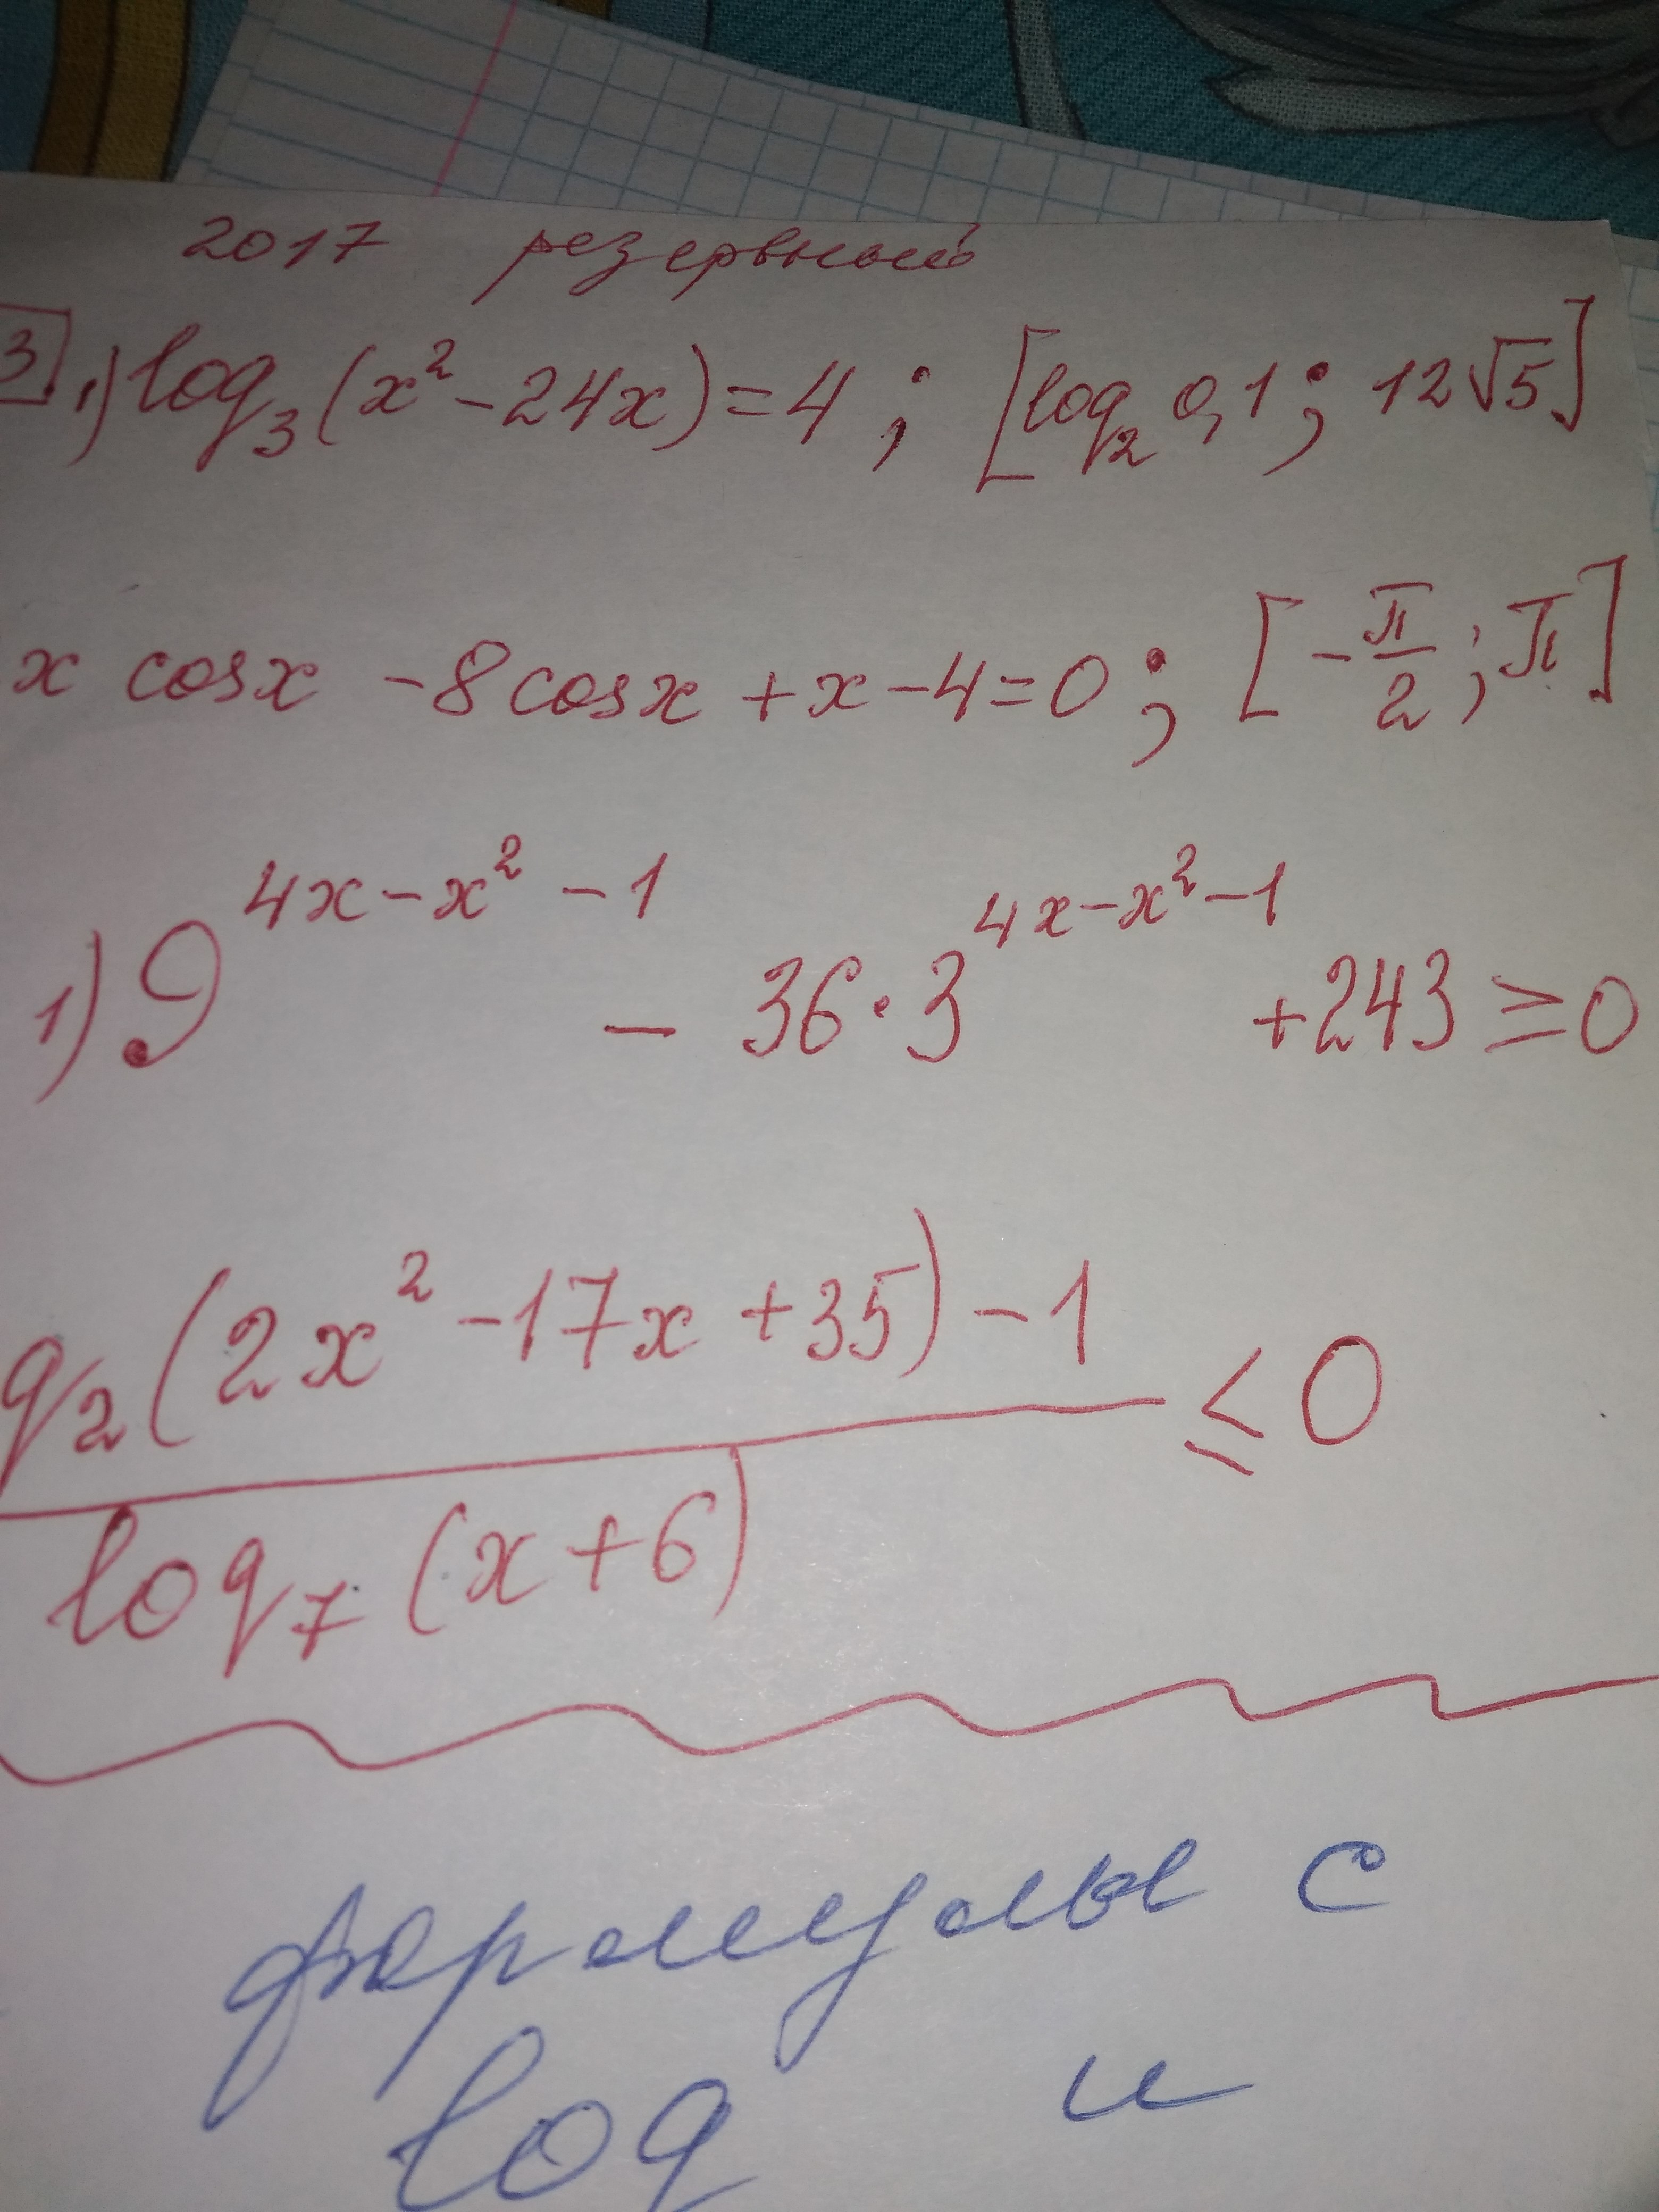 2017 резервный
3. 1) log₃(x²-24x)=4 ; [log₂ 0,1 ; 12√5]
x cosx -8cosx +x-4=0 ; [-π/2 ; π]
1) 9^(4x-x²-1) - 36·3^(4x-x²-1) +243 ≥ 0
g₂(2x²-17x+35)-1 ≤ 0
log₇(x+6)
формулы с
log и